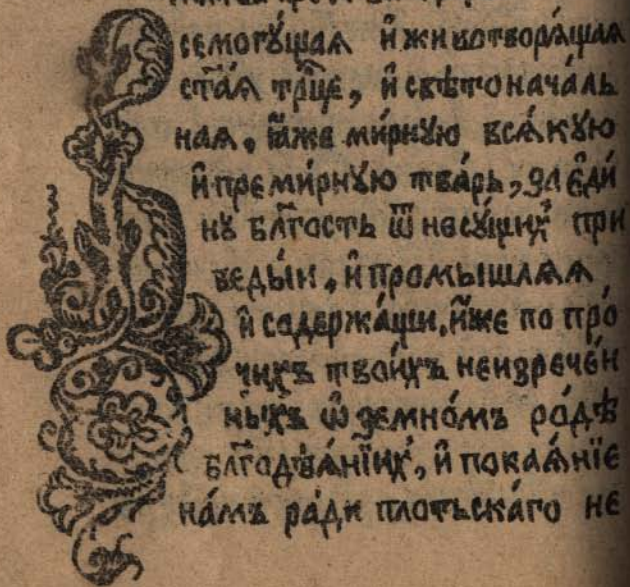 семогꙋ́щая и҆животворѧ́щая
ст҃а́ѧ тр҃це, и҆свѣтонача́ль
наѧ, ꙗ҆́же ми́рнꙋю всѧ́кꙋю
и҆премі́рнꙋю тва́рь, за є҆ди́
нꙋ бл҃гость ѿ несꙋ́щихъ при
веды́и, и҆промышлѧ́ѧ
и҆ содержа́щи, и҆́же по про́
чихъ твои́хъ неизрече́н
ныхъ ѡ҆ земно́мъ ро́дѣ
бл҃годѣѧ́нїихъ, и҆ покаѧ́нїе
на́мъ ра́ди плотьска́го не